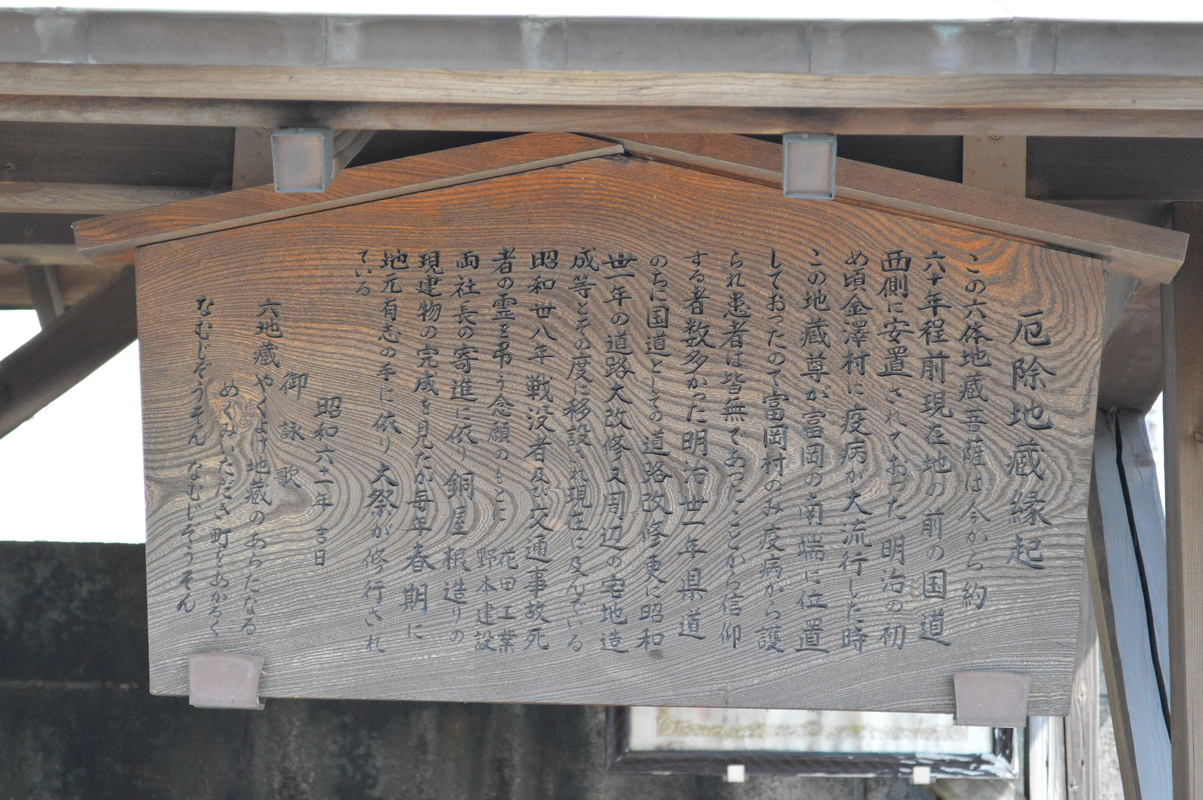 厄除地蔵縁起
この六体地蔵菩薩は今から約
六十年程前現在地の前の国道
西側に安置されておった明治の初
め頃金澤村に疫病が大流行した時
この地蔵尊が富岡の南端に位置
しておったので富岡村のみ疫病から護
られ患者は皆無であったことから信仰
する者数多かった明治丗一年県道
のちに国道としての道路改修更に昭和
丗一年の道路大改修又周辺の宅地造
成等とその度に移設され現在に及んでいる
昭和丗八年戦没者及び交通事故死
者の霊を弔う念願のもとに花田工業
野本建設
両社長の寄進に依り銅屋根造りの
現建物の完成を見たが毎年春期に
地元有志の手に依り大祭が修行され
ている
昭和六十二年 吉日
御詠歌
六地蔵やくよけ地蔵のあらたなる
めぐみいただき町をあかるく
なむじぞうそんなむじぞうそん